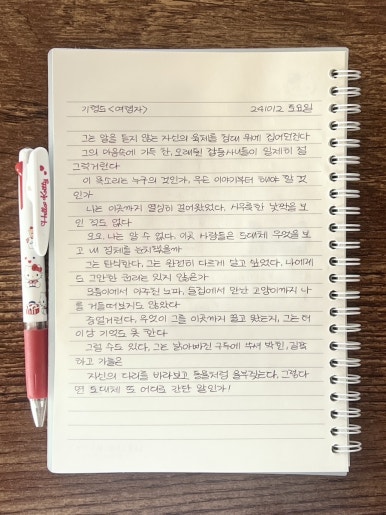 기형도 <여행자> 241012 토요일
그는 말을 듣지 않는 자신의 육체를 침대 위에 집어던진다
그의 마음속에 가득 찬, 오래된 잡동사니들이 일제히 절
그럭거린다
이 목소리는 누구의 것인가, 무슨 이야기부터 해야 할 것
인가
나는 이곳까지 열심히 걸어왔었다, 시무룩한 낯짝을 보
인 적도 없다
오오, 나는 알 수 없다, 이곳 사람들은 도대체 무엇을 보
고 내 정체를 눈치챘을까
그는 탄식한다, 그는 완전히 다르게 살고 싶었다, 나에게
도 그만한 권리는 있지 않은가
모퉁이에서 마주친 노파, 술집에서 만난 고양이까지 나
를 거들떠보지도 않았다
중얼거린다, 무엇이 그를 이곳까지 끌고 왔는지, 그는 더
이상 기억도 못 한다
그럴 수도 있다, 그는 낡아빠진 구두에 쑤셔 박힌, 길쭉
하고 가늘은
자신의 다리를 바라보고 동물처럼 울부짖는다, 그렇다
면 도대체 또 어디로 간단 말인가!
Hello Kitty